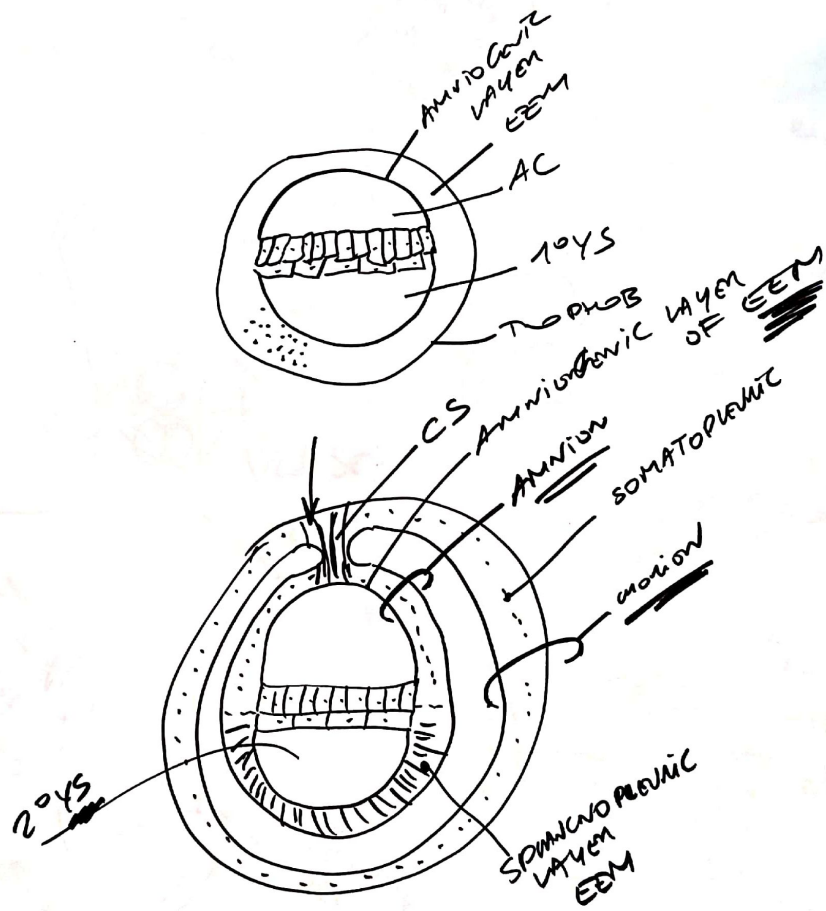 AMNIOGENIC
LAYER
EEM
AC
1° YS
TROPHOB
AMNIOGENIC LAYER
OF EEM
CS
AMNION
SOMATOPLEURIC
CHORION
2° YS
SPLANCHNOPLEURIC
LAYER
EEM